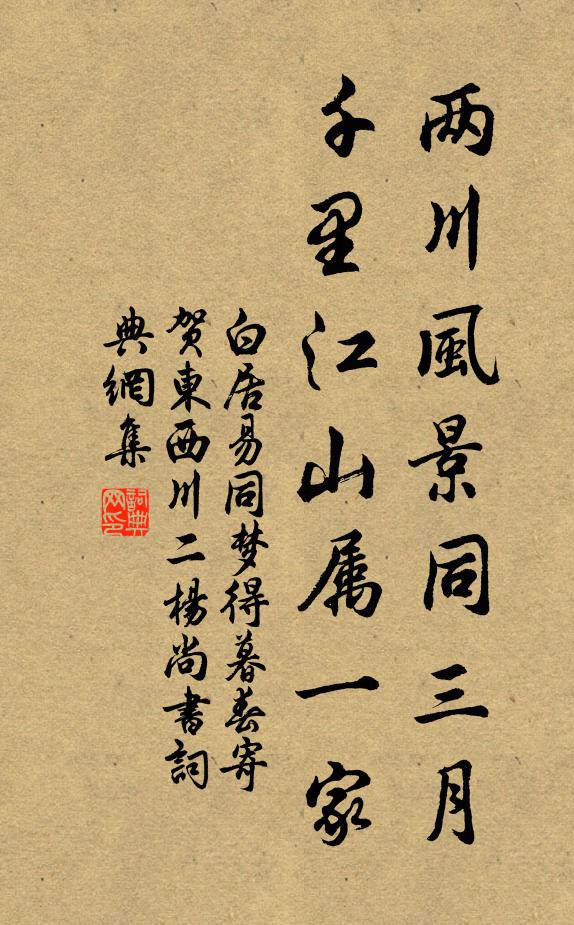 两川風景同三月
千里江山属一家
白居易同梦得暮春寄
贺東西川二楊尚書詞
典網集
詞典网印